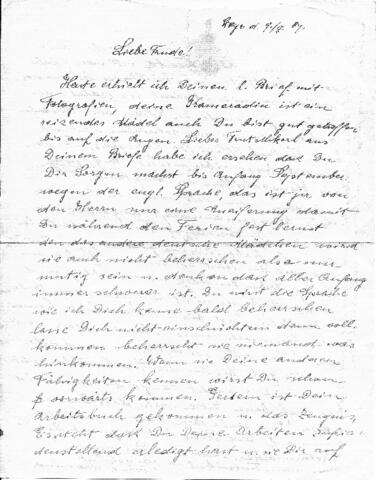 Liebe Trude!
Heute erhielt ich Deinen l. Brief mit
Fotografien, deine Kameradin ist ein
reizendes Mädel auch Du bist gut getroffen
bis auf die Augen. Liebes
Deinem Briefe habe ich ersehen das Du
Dir Sorgen machst bis Anfang September
wegen der engl. Sprache das ist ja von
den Herrn nur eine Aneiferung damit
Du während den Ferien fest lernst
den das andere deutsche Mädchen wird
sie auch nicht beherrschen also nur
mutig sein u. denken das aller Anfang
immer schwerer ist. Du wirst die Sprache
wie ich Dich kenne bald beherrschen
lasse Dich nicht einschüchtern denn voll-
kommen beherrscht sie niemand was
hinkommen. Wenn sie Deine anderen
Fähigkeiten kennen wirst Du schon
vorwärts kommen. Gestern ist Dein
Arbeitsbuch gekommen u. das Zeugnis,
das Du Deine Arbeiten zufrie-
denstellend erledigt hast u. sie Dir auf